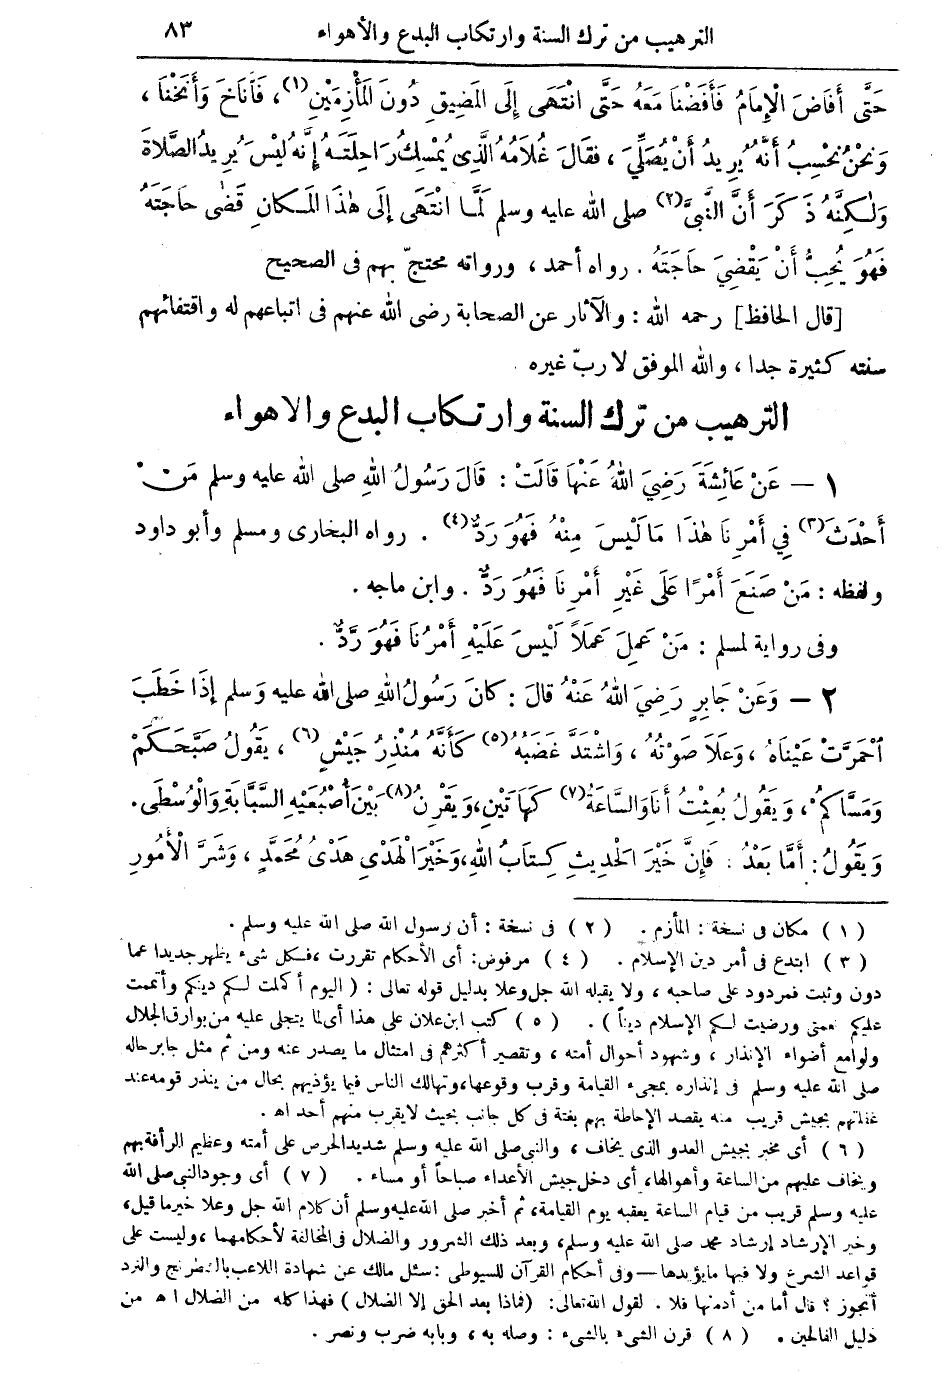 الترهيب من ترك السنة وارتكاب البدع والأهواء ٨٣
حَتَّى أَفَاضَ الْإِمَامُ فَأَفَضْنَا مَعَهُ حَتَّى انْتَهَى إِلَى المَضِيقِ دُونَ المَأْزِمَيْنِ (١) ، فَأَنَاخَ وَأَنَخْنَا ،
وَنَحْنُ نَحْسِبُ أَنَّهُ يُرِيدُ أَنْ يُصَلِّيَ ، فَقَالَ غُلَامُهُ الَّذِي يُمْسِكُ رَاحِلَتَهُ إِنَّهُ لَيْسَ يُرِيدُ الصَّلَاةَ
وَلٰكِنَّهُ ذَكَرَ أَنَّ النَّبِيَّ (٢) صلى الله عليه وسلم لَمَّا انْتَهَى إِلَى هٰذَا المَكَانِ قَضَى حَاجَتَهُ
فَهُوَ يُحِبُّ أَنْ يَقْضِيَ حَاجَتَهُ . رواه أحمد ، ورواته محتجّ بهم فى الصحيح
[قال الحافظ] رحمه الله : والآثار عن الصحابة رضى الله عنهم فى اتباعهم له واقتفائهم
سنته كثيرة جدا ، والله الموفق لا ربّ غيره .
الترهيب من ترك السنة وارتكاب البدع والاهواء
١ — عَنْ عَائِشَةَ رَضِيَ اللهُ عَنْهَا قَالَتْ : قَالَ رَسُولُ اللهِ صلى الله عليه وسلم مَنْ
أَحْدَثَ (٣) فِي أَمْرِنَا هٰذَا مَا لَيْسَ مِنْهُ فَهُوَ رَدٌّ (٤) . رواه البخارى ومسلم وأبو داود
ولفظه : مَنْ صَنَعَ أَمْرًا عَلَى غَيْرِ أَمْرِنَا فَهُوَ رَدٌّ . وابن ماجه .
وفى رواية لمسلم : مَنْ عَمِلَ عَمَلاً لَيْسَ عَلَيْهِ أَمْرُنَا فَهُوَ رَدٌّ .
٢ — وَعَنْ جَابِرٍ رَضِيَ اللهُ عَنْهُ قَالَ : كَانَ رَسُولُ اللهِ صلى الله عليه وسلم إِذَا خَطَبَ
احْمَرَّتْ عَيْنَاهُ ، وَعَلَا صَوْتُهُ ، وَاشْتَدَّ غَضَبُهُ (٥) كَأَنَّهُ مُنْذِرُ جَيْشٍ (٦) ، يَقُولُ صَبَّحَكُمْ
وَمَسَّاكُمْ ، وَيَقُولُ بُعِثْتُ أَنَا وَالسَّاعَةُ (٧) كَهَاتَيْنِ ، وَيَقْرِنُ (٨) بَيْنَ أُصْبُعَيْهِ السَّبَّابَةِ وَالْوُسْطَى .
وَيَقُولُ : أَمَّا بَعْدُ . فَإِنَّ خَيْرَ الحَدِيثِ كِتَابُ اللهِ ، وَخَيْرَ الْهَدْيِ هَدْىُ مُحَمَّدٍ ، وَشَرَّ الْأُمُورِ
(١) مكان فى نسخة : المأزم . (٢) فى نسخة : أن رسول الله صلى الله عليه وسلم .
(٣) ابتدع فى أمر دين الإسلام . (٤) مرفوض : أى الأحكام تقررت ، فكل شىء يظهر جديدا عما
دون وثبت فمردود على صاحبه ، ولا يقبله الله جل وعلا بدليل قوله تعالى : ( اليوم أكملت لكم دينكم وأتممت
عليكم نعمتى ورضيت لكم الإسلام ديناً ) . (٥) كتب ابن علان على هذا أى لما يتجلى عليه من بوارق الجلال
ولوامع أضواء الإنذار ، وشهود أحوال أمته ، وتقصير أكثرهم فى امتثال ما يصدر عنه ومن ثم مثل جابر حاله
صلى الله عليه وسلم فى إنذاره بمجىء القيامة وقرب وقوعها ، وتهالك الناس فيما يؤذيهم بحال من ينذر قومه عند
غفلتهم بجيش قريب منه يقصد الإحاطة بهم بغتة فى كل جانب بحيث لا يقرب منهم أحد اه .
(٦) أى مخبر بجيش العدو الذى يخاف ، والنبى صلى الله عليه وسلم شديد الحرص على أمته وعظيم الرأفة بهم
ويخاف عليهم من الساعة وأهوالها ، أى دخل جيش الأعداء صباحاً أو مساء . (٧) أى وجود النبى صلى الله
عليه وسلم قريب من قيام الساعة يعقبه يوم القيامة ، ثم أخبر صلى الله عليه وسلم أن كلام الله جل وعلا خير ما قيل ،
وخير الإرشاد إرشاد محمد صلى الله عليه وسلم ، وبعد ذلك الشرور والضلال فى المخالفة لأحكامهما ، وليست على
قواعد الشرع ولا فيها ما يؤيدها — وفى أحكام القرآن للسيوطى : سئل مالك عن شهادة اللاعب بالشطرنج والنرد
أتجوز ؟ قال أما من أدمنها فلا . لقول الله تعالى : (فماذا بعد الحق إلا الضلال) فهذا كله من الضلال اه من
دليل الفالحين . (٨) قرن الشىء بالشىء : وصله به ، وبابه ضرب ونصر .